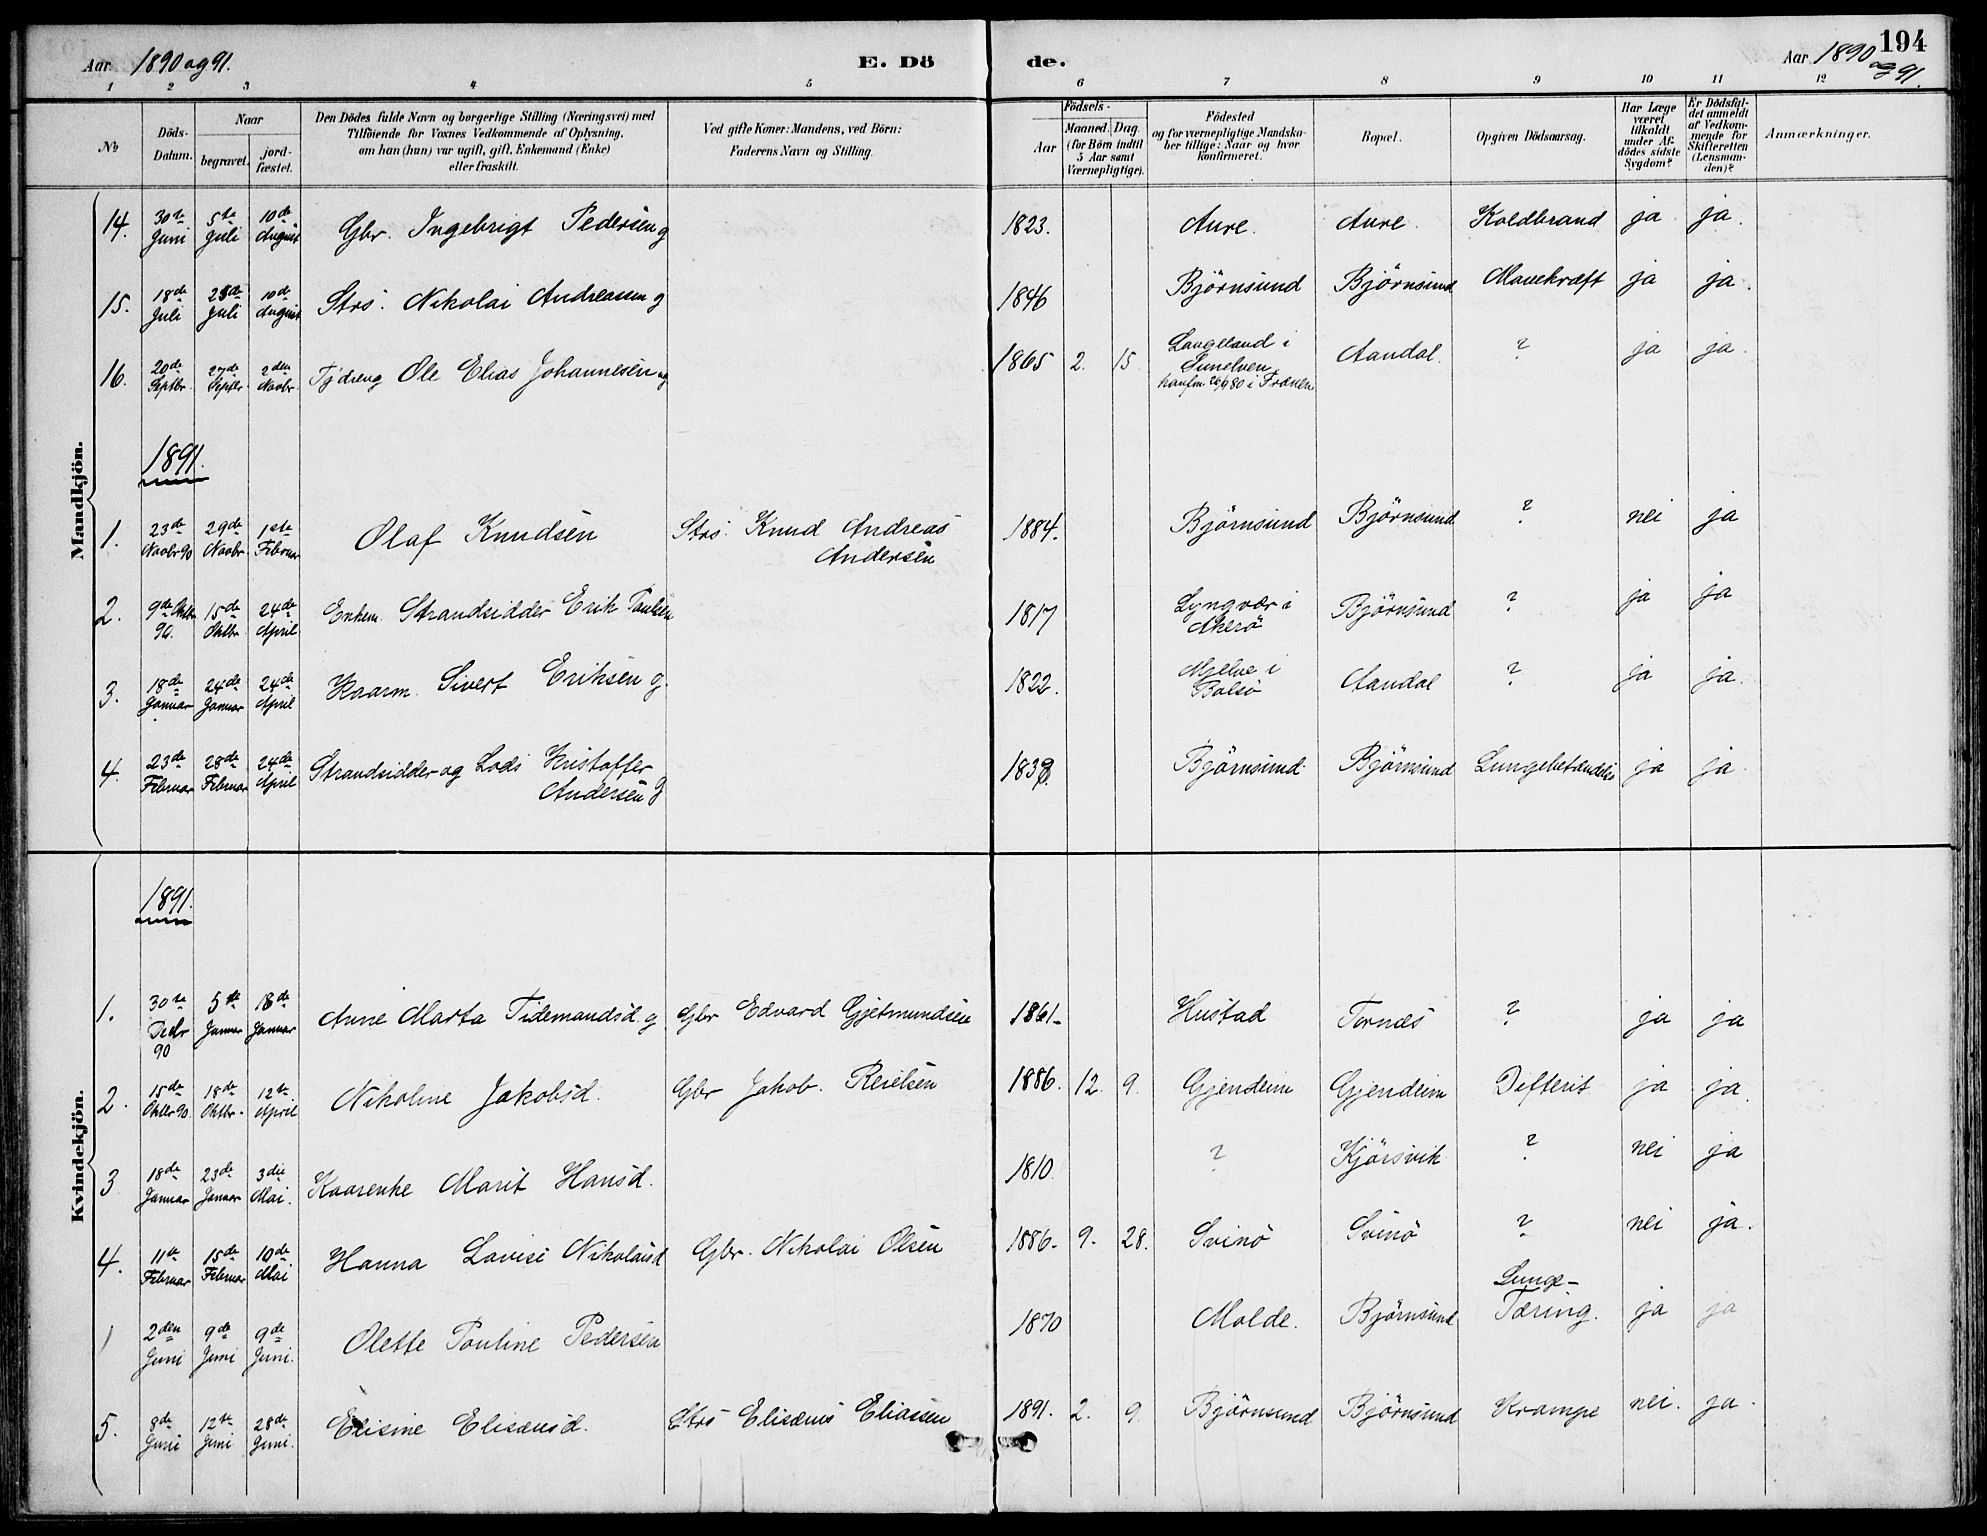 Aar 1890 og 91. E. Dö de. Aar 1890 og 91. 194
1 2 3 4 5 6 7 8 9 10 11 12
No
Döds-Datum.
Naar
begravet.
jordfæstet.
Den Dödes fulde Navn og borgerlige Stilling (Næringsvei) med
Tilföiende for Voxnes Vedkommende af Oplysning,
om han (hun) var ugift, gift, Enkemand (Enke)
eller fraskilt.
Ved gifte Koner: Mandens, ved Börn:
Faderens Navn og Stilling.
Födsels-
Aar
Maaned. Dag.
(for Börn indtil
5 Aar samt
Værnepligtige).
Födested
og for værnepligtige Mandska-
ber tillige: Naar og hvor
konfirmeret.
Bopæl.
Opgiven Dödsaarsag.
Har Læge
været
tilkaldt
under Af-
dödes sidste
Sygdom?
Er Dödsfal-
det anmeldt
af Vedkom-
mende for
Skifteretten
(Lensman-
den)?
Anmærkninger.
Mandkjön.
14. 30te Juni 5te Juli 10de August Gbr. Ingebrigt Pedersen g 1823. Aure. Aure. Koldbrand ja ja.
15. 18de Juli 25de Juli 10de August Strs. Nikolai Andreasen g 1846 Björnsund Björnsund Mavekræft ja ja.
16. 20de Septbr. 27de Septbr. 2den Novbr. Tjdreng Ole Elias Johannesen ug 1865 2. 15. Langeland i
Sunelven, konfm 26/9 80 i Frænen Aandal. ? ja ja.
1891.
1. 23de Novbr 90 29de Novbr. 1ste Februar Olaf Knudsen Strs. Knud Andreas
Andersen 1884. Björnsund Björnsund ? nei ja
2. 9de Oktbr 90. 15de Oktbr. 24de April Enkem. Strandsidder Erik Paulsen 1817 Lyngvær i
Akerö Björnsund ? ja ja
3. 18de Januar 24de Januar 24de April Kaarm. Sivert Eriksen g. 1822. Mjelve i
Bolsö Aandal ? ja ja.
4. 23de Februar 28de Februar 24de April Strandsidder og Lods Kristoffer
Andersen g 1839. Björnsund Björnsund Lungebetændelse ja ja.
Kvindekjön.
1891.
1. 30te Decbr 90 5te Januar 18de Januar Anne Marta Tidemandsd. g Gbr Edvard Gjetmundsen 1861. Hustad Tornes ? ja ja
2. 15de Oktbr 90. 18de Oktbr. 12te April Nikoline Jakobsd. Gbr Jakob. Reielsen 1886. 12. 9. Gjendem Gjendem Difterit ja ja.
3 18de Januar 23de Januar 3die Mai. Kaarenke Marit Hansd. 1810 ? Kjörsvik ? nei ja
4. 11te Februar 15de Februar 10de Mai Hanna Lovise Nikolaisd Gbr. Nikolai Olsen 1886. 9. 28. Svinö Svinö ? nei ja.
1 2den Juni 9de Juni 9de Juni. Olette Pauline Pedersen 1870 Molde. Björnsund Lunge-
Tæring. ja ja
5. 8de Juni 12te Juni 28de Juni. Elisine Elisæusd. Strs Elisæus Eliassen 1891. 2. 9. Björnsund Björnsund Krampe nei. ja.